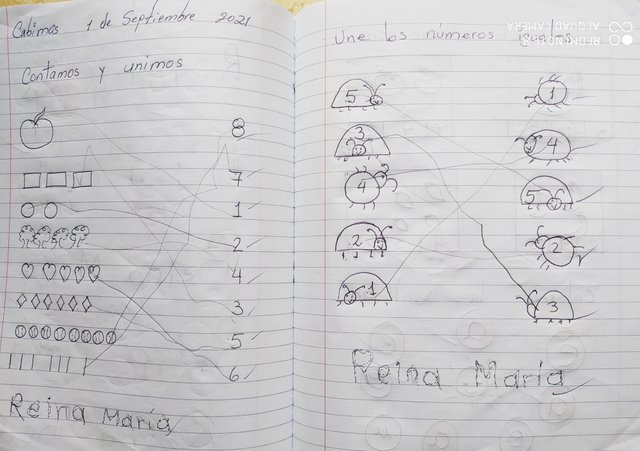 Cabimas 1 de Septiembre 2021
Contamos y unimos
8
7
1
2
4
3
5
6
Reina María
REDMI NOTE 8
AI QUAD CAMERA
Une los números iguales
5 1
3 4
4 5
2 2
1 3
Reina María